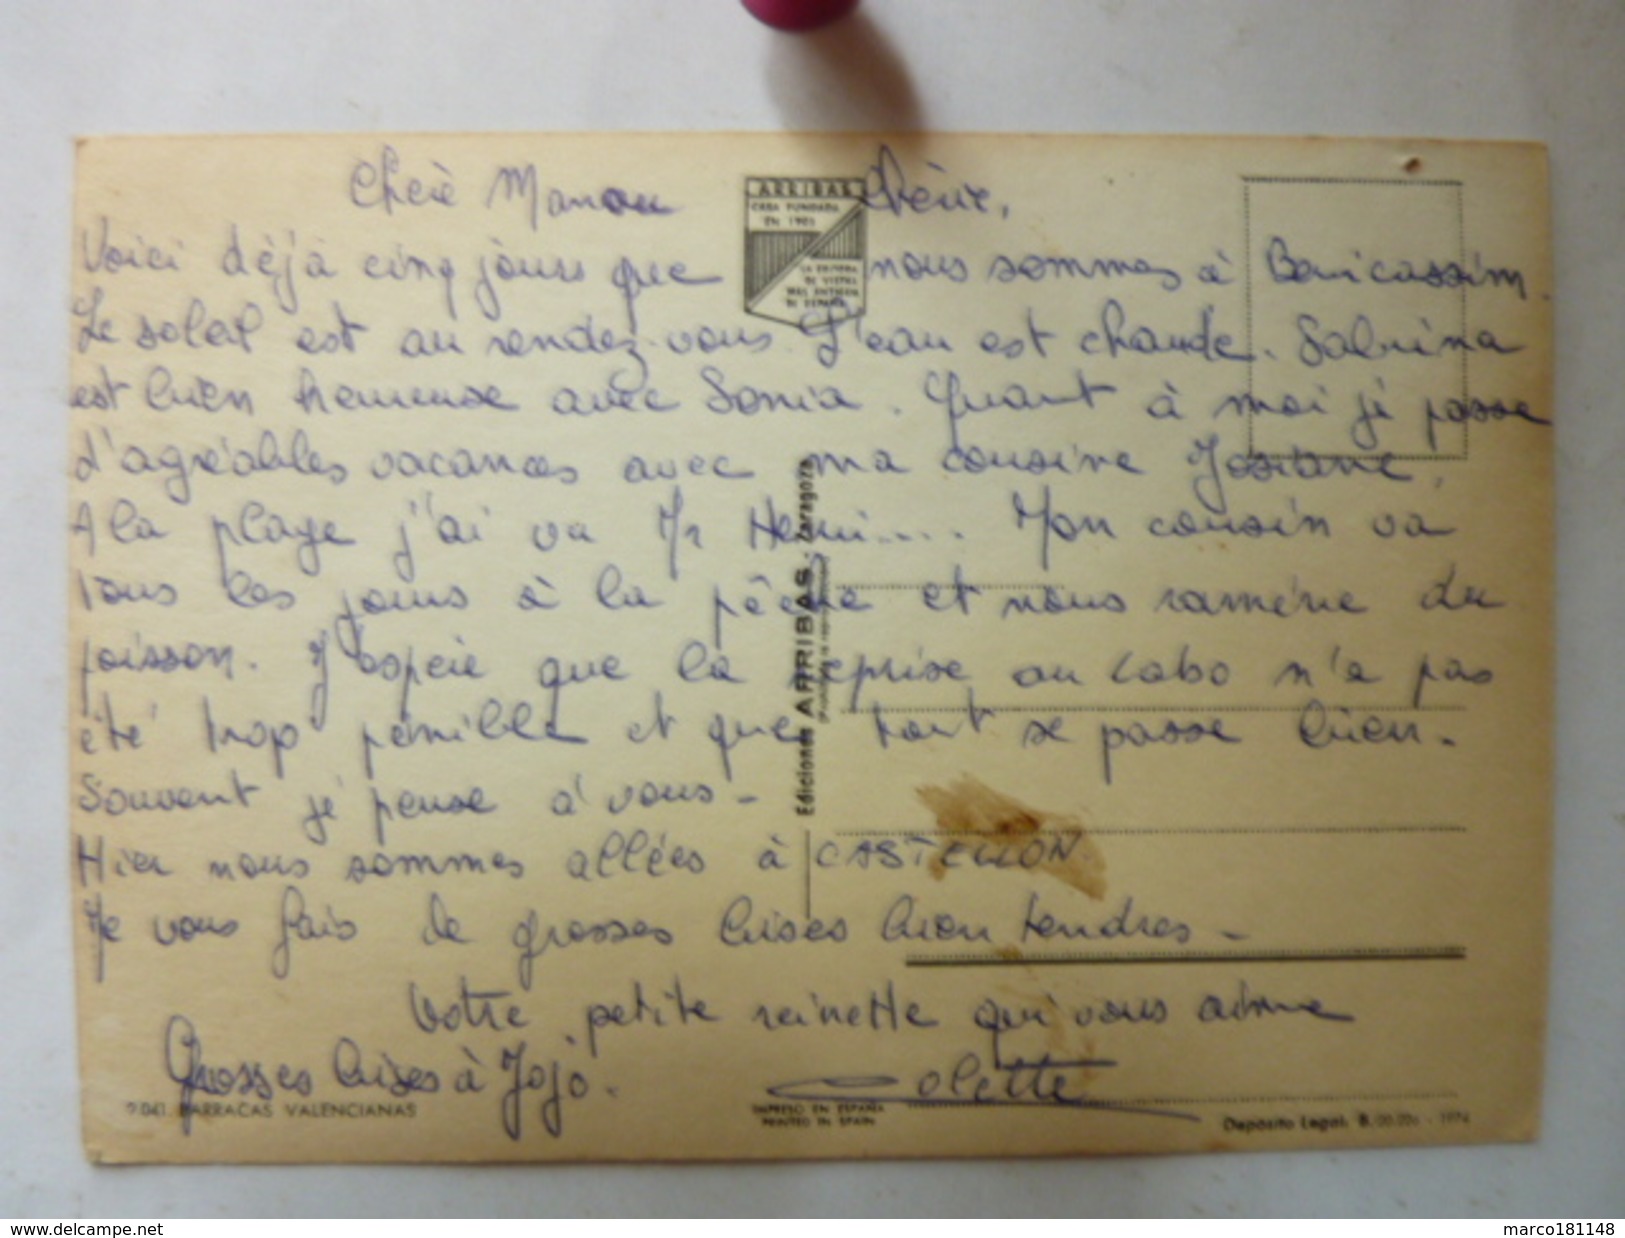 Chère Manou Chérie,
ARRIBAS
CASA FUNDADA
EN 1905
LA EDITORA
DE VISTAS
MAS ANTIGUA
DE ESPAÑA
Voici déjà cinq jours que nous sommes à Benicassim.
Le soleil est au rendez-vous. L'eau est chaude. Sabrina
est bien heureuse avec Sonia. Quant à moi je passe
d'agréables vacances avec ma cousine Josiane.
A la plage j'ai vu Mr Henri.... Mon cousin va
tous les jours à la pêche et nous ramène du
poisson. J'espère que la reprise au Labo n'a pas
été trop pénible et que tout se passe bien.
Souvent je pense à vous -
Hier nous sommes allées à CASTELLON
Je vous fais de grosses bises bien tendres -
Votre petite reinette qui vous aime
Grosses bises à Jojo.
Colette
Ediciones ARRIBAS - Zaragoza
(Prohibida la reproducción)
2.041. BARRACAS VALENCIANAS
IMPRESO EN ESPAÑA
PRINTED IN SPAIN
Depósito Legal. B. - 1974
www.delcampe.net
marco181148